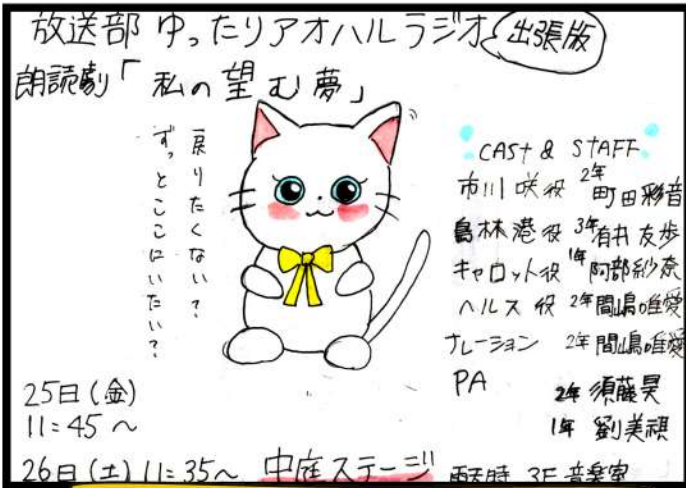 放送部 ゆったりアオハルラジオ 出張版
朗読劇「私の望む夢」
戻りたくない?
ずっとここにいたい?
CASt & StAFF
市川咲役 2年 町田彩音
島林港役 3年 有井友歩
キャロット役 1年 阿部紗奈
ヘルス役 2年 間嶋唯愛
ナレーション 2年 間嶋唯愛
PA 2年 須藤昊
1年 劉美禩
25日(金)
11:45~
26日(土)11:35~ 中庭ステージ 雨天時 3F 音楽室